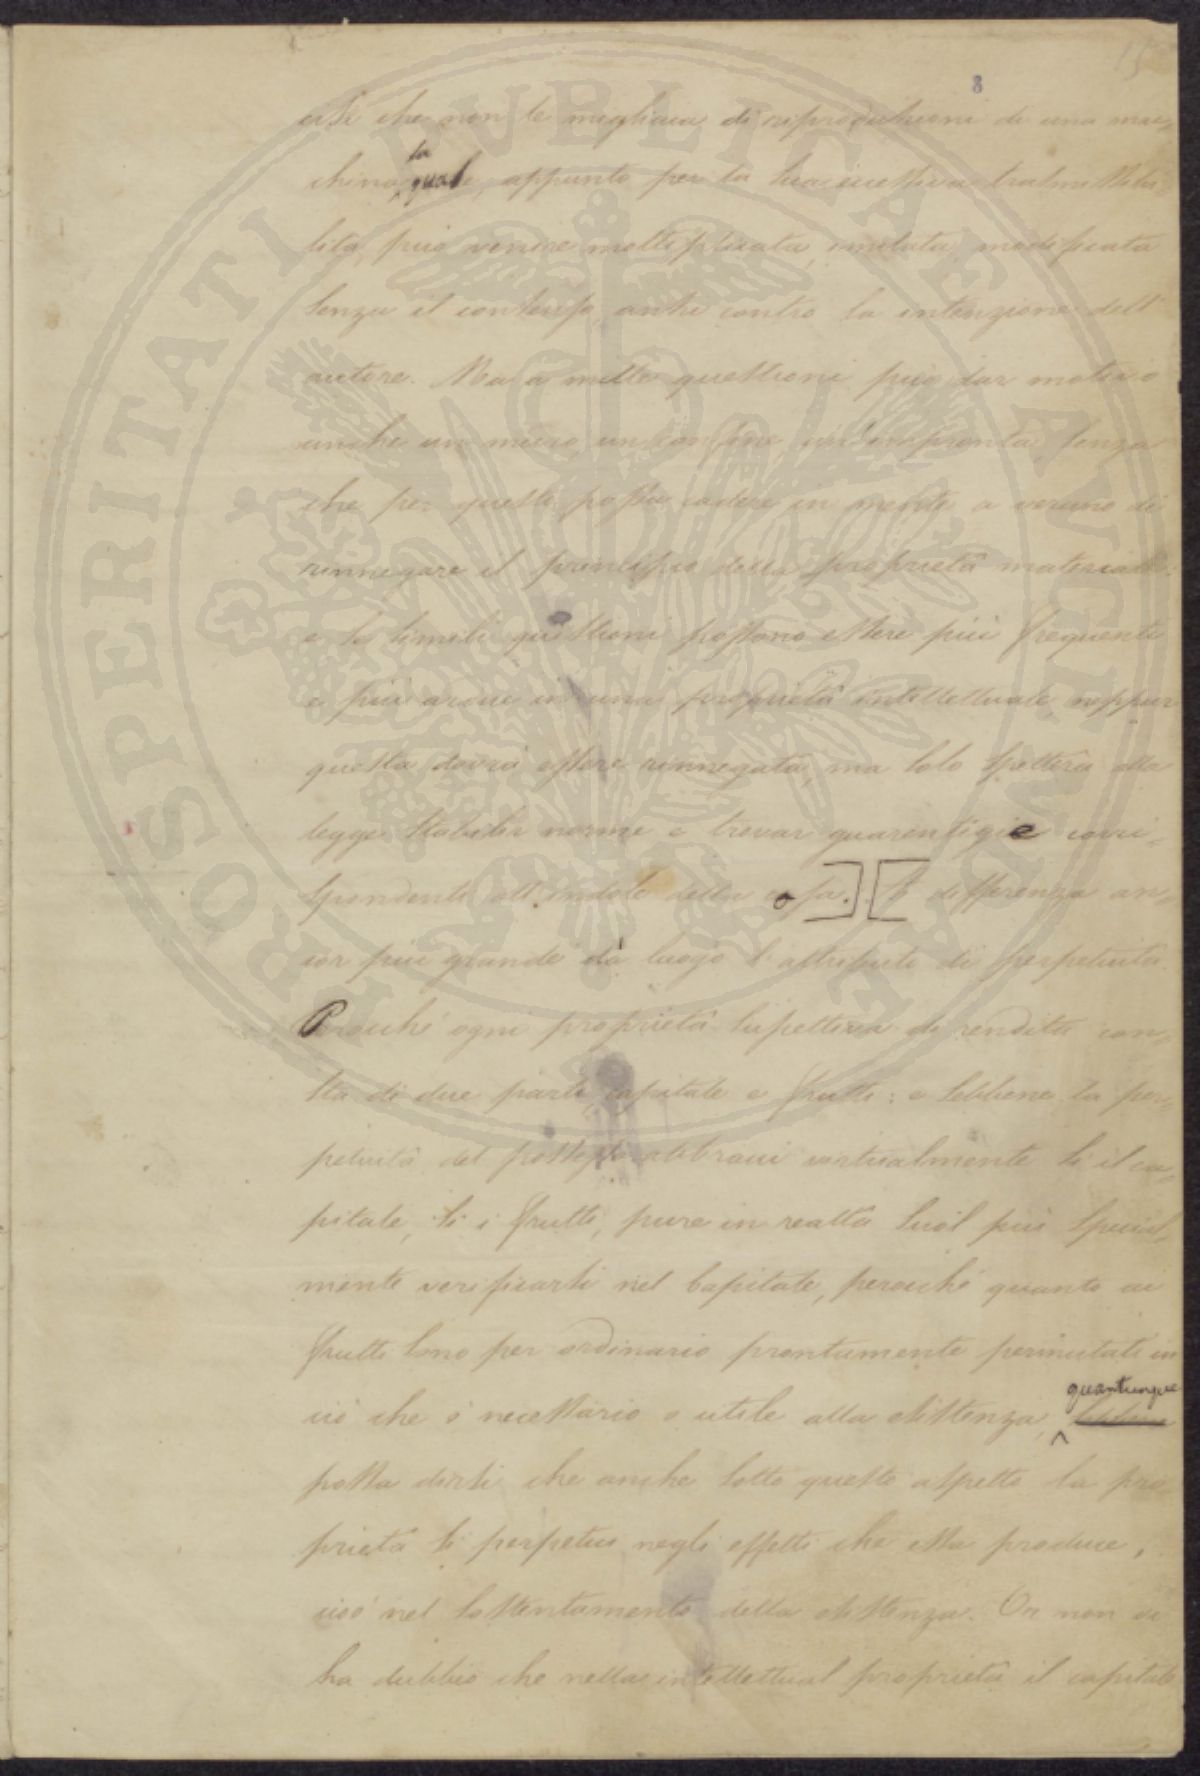 8
15
che non le migliaia di riproduzioni di una mac-
china la quale, appunto per la sua successiva trasmissibi-
lità, può venire moltiplicata, imitata, modificata
senza il consenso, anzi contro la intenzione dell'
autore. Ma a mille questioni può dar motivo
anche un muro, un confine, un'impronta, senza
che per questo possa cadere in mente a veruno di
rinnegare il principio della proprietà materiale:
e se simili quistioni possono essere più frequenti
e più ardue in una proprietà intellettuale neppur
questa dovrà essere rinnegata, ma solo spetterà alla
legge stabilir norme e trovar guarentigie corri-
spondenti all'indole della cosa.] [ differenza an-
cor più grande dà luogo l'attributo di perpetuità.
Perocché ogni proprietà suscettiva di rendita con-
sta di due parti, capitale e frutti: e sebbene la per-
petuità del possesso abbracci virtualmente sì il ca-
pitale, sì i frutti, pure in realtà suol più special-
mente verificarsi nel capitale, perocché quanto ai
frutti sono per ordinario prontamente permutati in
ciò che è necessario o utile alla esistenza, quantunque sebbene
possa dirsi che anche sotto questo aspetto la pro-
prietà si perpetui negli effetti che essa produce,
cioè nel sostentamento della esistenza. Or non vi
ha dubbio che nella intellettual proprietà il capitale
PROSPERITATI PVBLICAE AVGENDAE